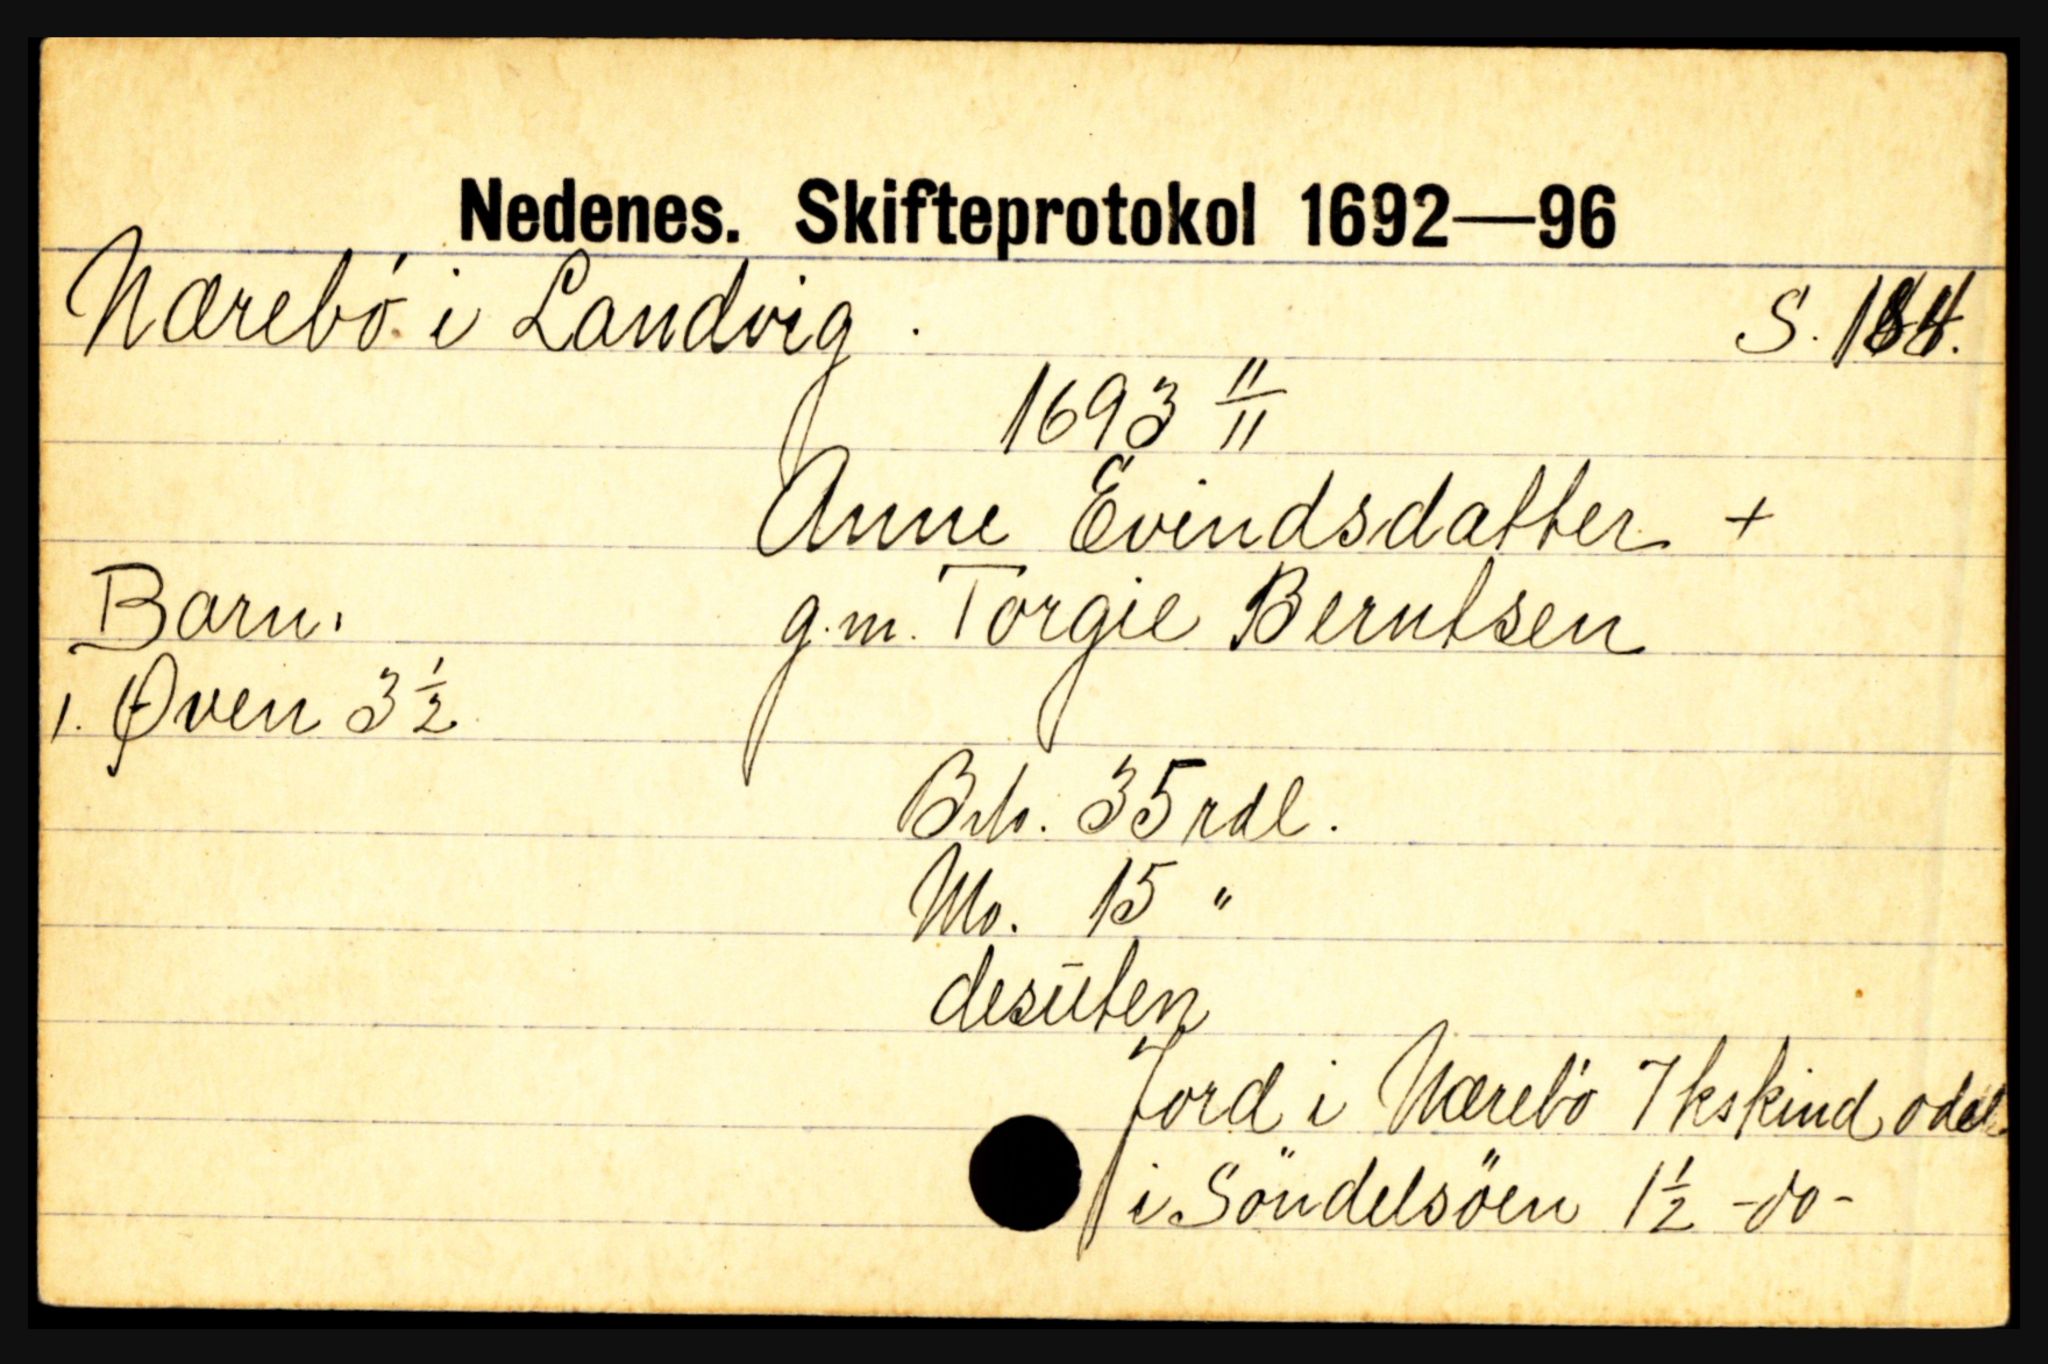 Nedenes. Skifteprotokol 1692—96
Nærebö i Landvig. S.
1693 11/11
Anne Evindsdatter +
Barn. g.m. Torgie Berntsen
1. Øven 3 1/2
Brh. 35 rdl.
Mo. 15 "
desūten
Jord i Nærebö 7 kskind odel
i Söndelsöen 1 1/2 -do-